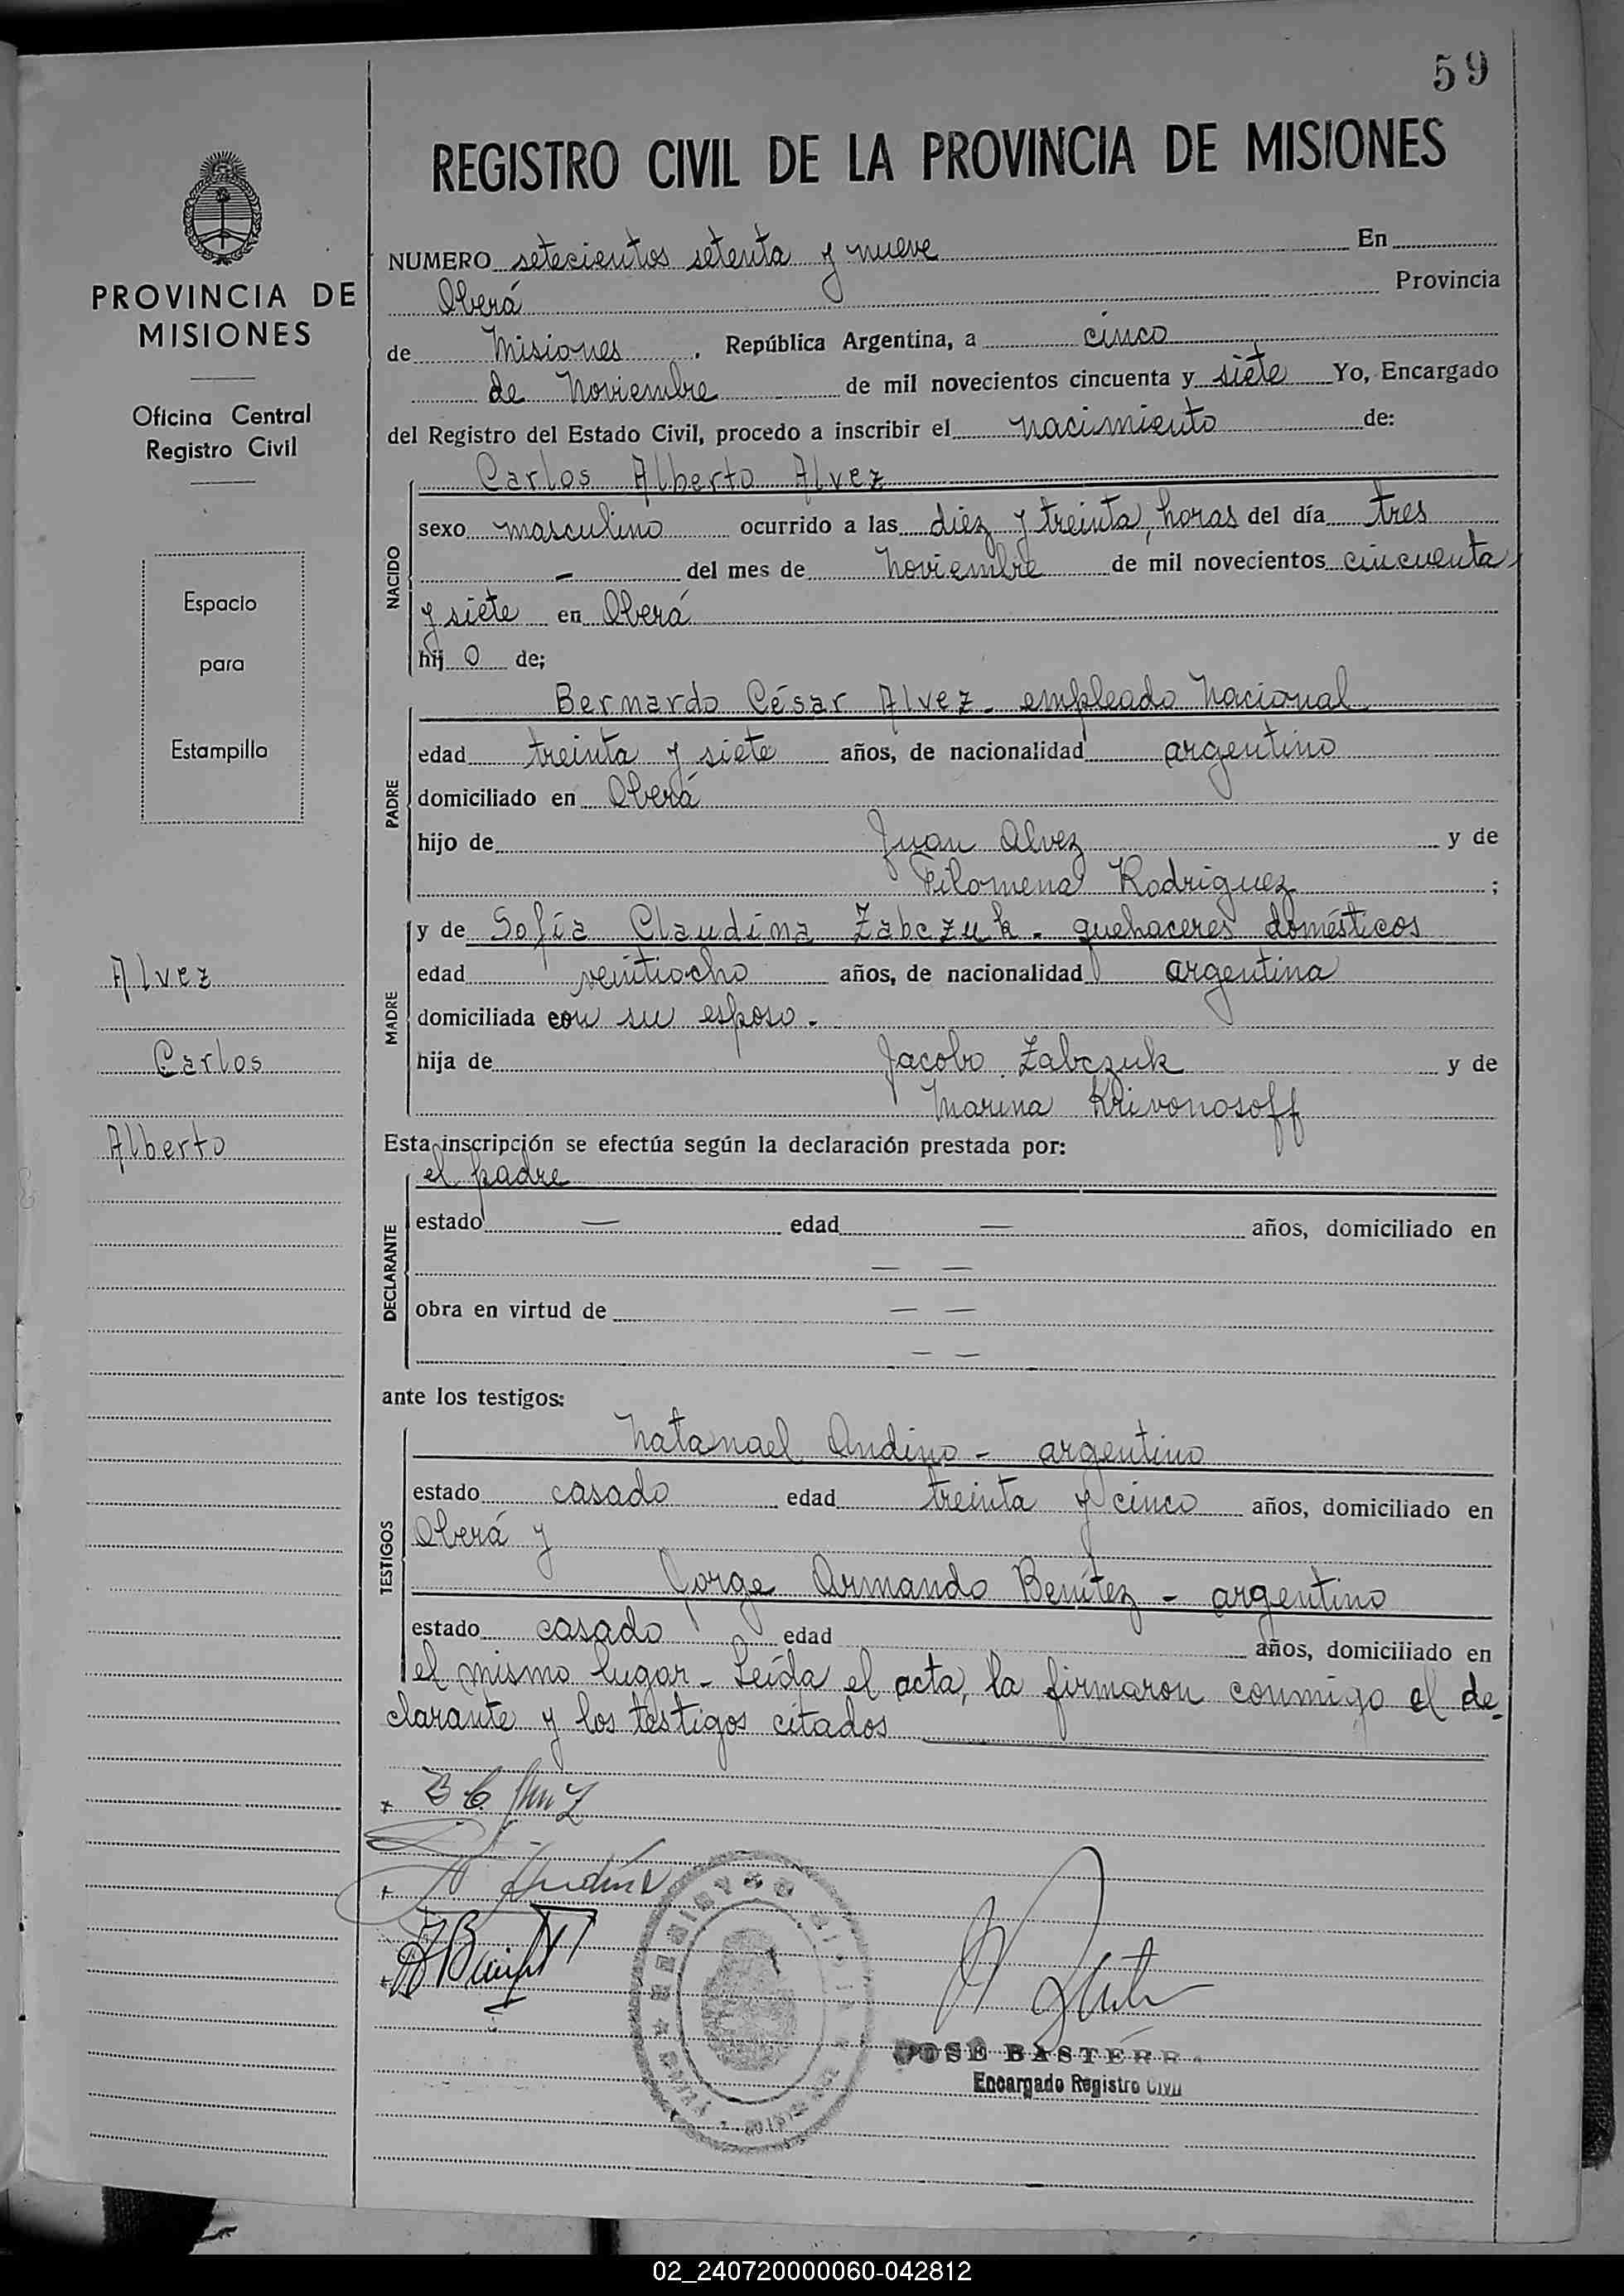 59
REGISTRO CIVIL DE LA PROVINCIA DE MISIONES
PROVINCIA DE
MISIONES
Oficina Central
Registro Civil
Espacio
para
Estampilla
Alvez
Carlos
Alberto
NUMERO setecientos setenta y nueve En
Oberá Provincia
de Misiones . República Argentina, a cinco
de Noviembre de mil novecientos cincuenta y siete Yo, Encargado
del Registro del Estado Civil, procedo a inscribir el nacimiento de:
NACIDO
Carlos Alberto Alvez
sexo masculino ocurrido a las diez y treinta, horas del día tres
- del mes de Noviembre de mil novecientos cincuenta
y siete en Oberá
hij o de;
PADRE
Bernardo César Alvez - empleado Nacional
edad treinta y siete años, de nacionalidad argentino
domiciliado en Oberá
hijo de Juan Alvez y de
Filomena Rodriguez ;
MADRE
y de Sofía Claudina Zabczuk - quehaceres domésticos
edad veintiocho años, de nacionalidad argentina
domiciliada con su esposo -
hija de Jacobo Zabczuk y de
Marina Krivonosoff
Esta inscripción se efectúa según la declaración prestada por:
DECLARANTE
el padre
estado — edad — años, domiciliado en
— —
obra en virtud de — —
— —
ante los testigos:
TESTIGOS
Natanael Andino - argentino
estado casado edad treinta y cinco años, domiciliado en
Oberá y
Jorge Armando Benítez - argentino
estado casado edad años, domiciliado en
el mismo lugar - Leída el acta, la firmaron conmigo el de-
clarante y los testigos citados
JOSÉ BASTERR
Encargado Registro Civil
02_240720000060-042812